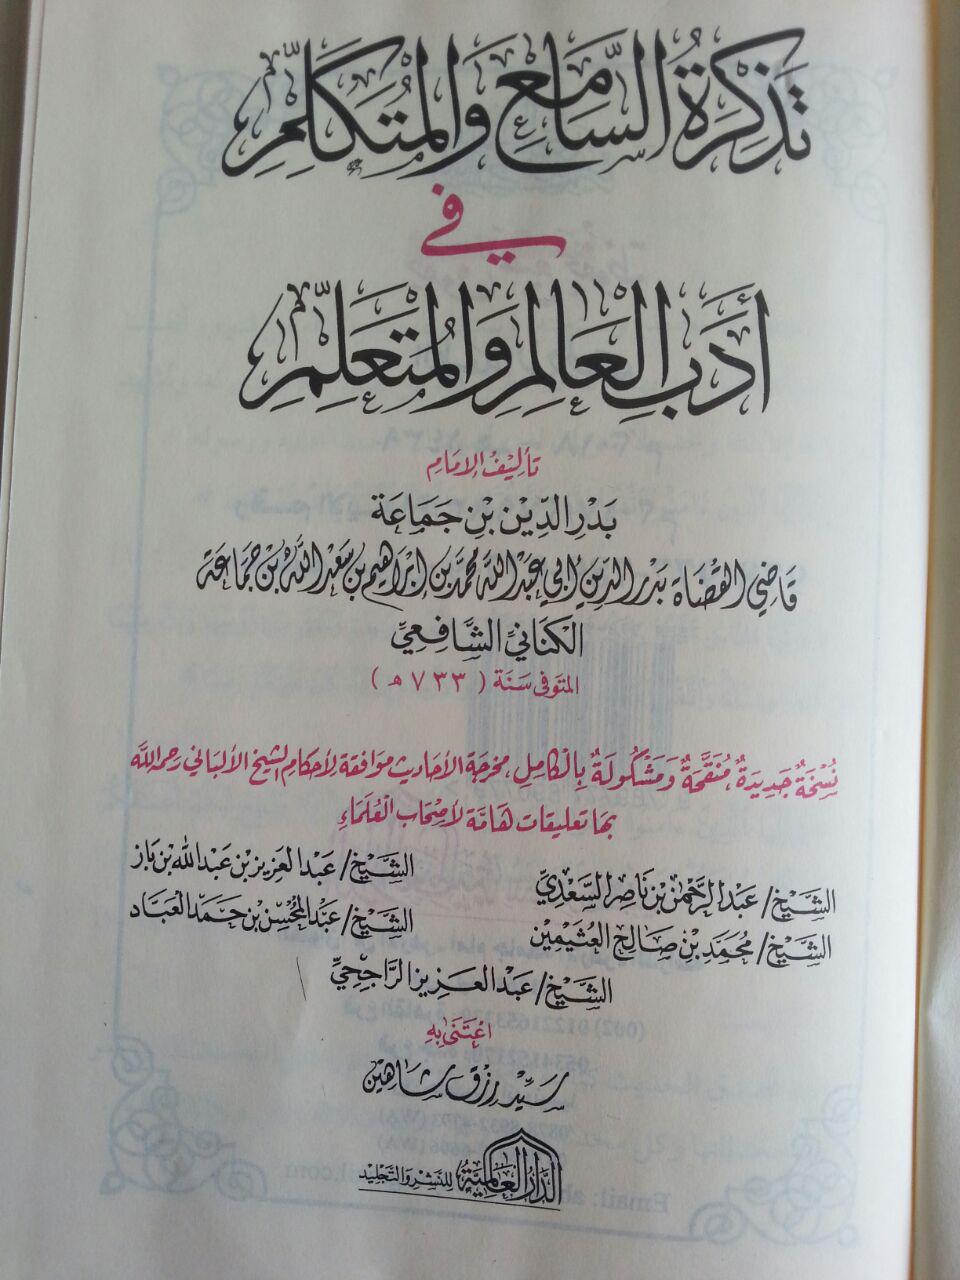 تَذْكِرَةُ السَّامِعِ وَالْمُتَكَلِّمِ
فِي
أَدَبِ الْعَالِمِ وَالْمُتَعَلِّمِ
تأليف الإمام
بَدْرِ الدِّيْنِ بْنِ جَمَاعَة
قاضي القضاة بدر الدين أبي عبد الله محمد بن إبراهيم بن سعد الله بن جماعة
الكنانيِّ الشَّافِعِيِّ
المتوفى سَنَة ( ٧٣٣ هـ )
نُسْخَةٌ جَدِيدَةٌ، مُنَقَّحَةٌ وَمَشْكُولَةٌ بِالْكَامِلِ، مخرجة الأحاديث موافقة لأحكام الشيخ الألباني رحمه الله
بها تعليقات هامَّة لأصحاب العُلَمَاءِ
الشَّيْخ/ عَبد الرَّحْمَن بن نَاصِر السَّعْدِيِّ الشَّيْخ/ عَبد العَزِيز بن عَبد الله بن بَاز
الشَّيْخ/ مُحَمَّدِ بْنِ صَالِحِ العُثَيْمِين الشَّيْخ/ عَبْد المُحْسِن بن حَمَد العَبَّاد
الشَّيْخ/ عَبْد العَزِيز الرَّاجِحِيِّ
اعْتَنَى بِهِ
سَيِّد رِزْق شَاهِين
الدَّارُ العَالَمِيَّة لِلنَّشْرِ وَالتَّجْلِيد